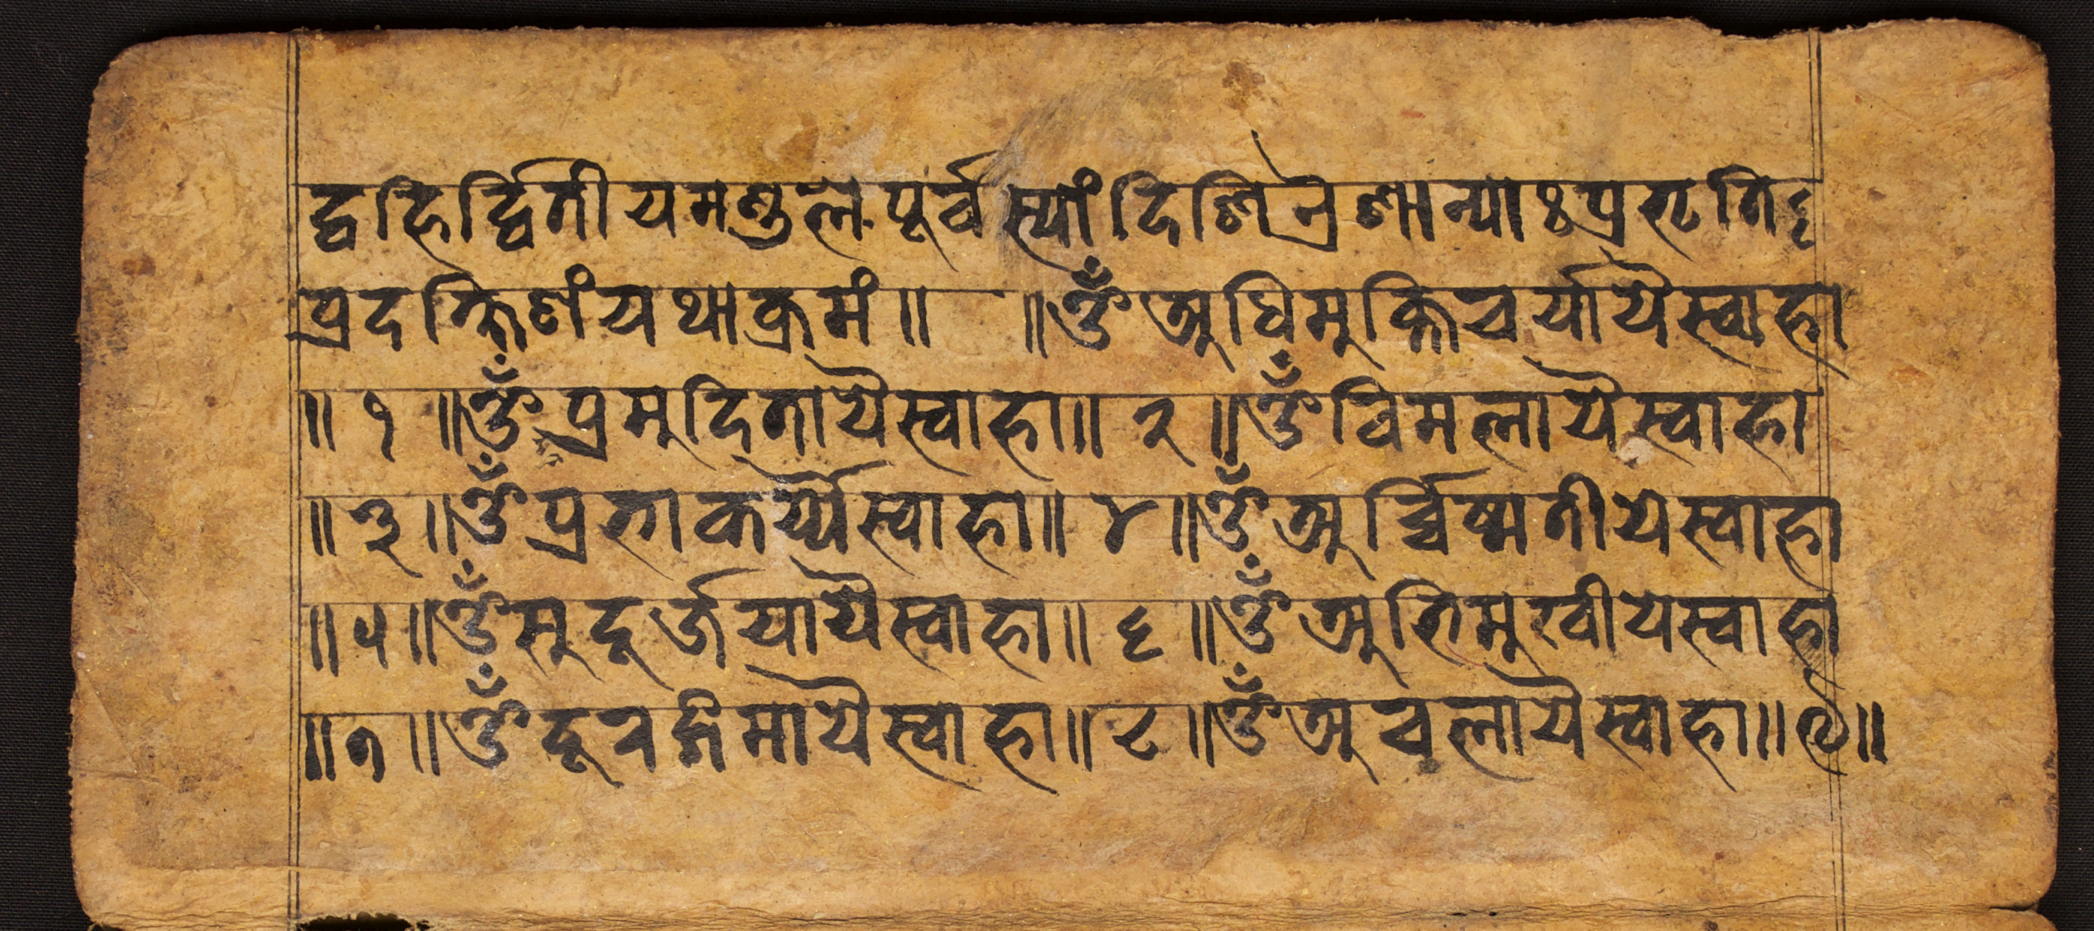 द्वहिर्द्वितीयमण्डल पूर्वस्यां दिशि नैशान्याः प्रभृतिदृ
प्रदक्षिणं यथाक्रमं ॥ ॥ ॐ अधिमुक्तिचर्यायै स्वाहा
॥ १ ॥ ॐ प्रमुदितायै स्वाहा ॥ २ ॥ ॐ विमलायै स्वाहा
॥ ३ ॥ ॐ प्रभाकर्य्यै स्वाहा ॥ ४ ॥ ॐ अर्च्चिष्मतीये स्वाहा
॥ ५ ॥ ॐ सुदूर्जयायै स्वाहा ॥ ६ ॥ ॐ अभिमुखीये स्वाहा
॥ ७ ॥ ॐ दूरङ्गमायै स्वाहा ॥ ८ ॥ ॐ अचलायै स्वाहा ॥ ९ ॥